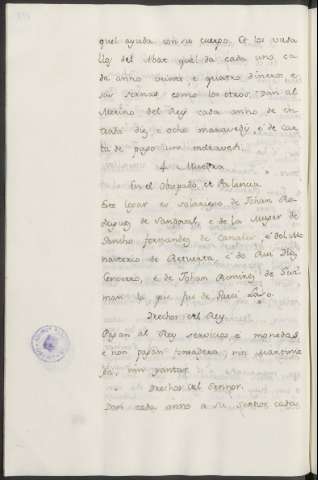 quel ayuda con su cuerpo. Et los vasa
llos del Abat quel dà cada uno ca
da anno veinte e quatro dineros e
sus sernas como los otros. Dan al
Merino del Rey cada anno de en
trada diz e ocho maravedis, é de car
ta de pago un maravedi.
Muestra
En el Obispado de Palencia
Este logar es solariego de Johan Ro
driguez de Sandoval, e de la Muger de
Sancho Fernandez de Canales é del Mo
nasterio de Retuerta, é de Rui Diaz
é de Johan Ramirez de Guz
man lo que fue de Garci Laso.
Drechos del Rey.
Pagan al Rey servicios e monedas
e non pagan fonsadera, nin martinie
ga, nin yantar.
Drechos del Señor.
Dan cada anno a su Señor cada